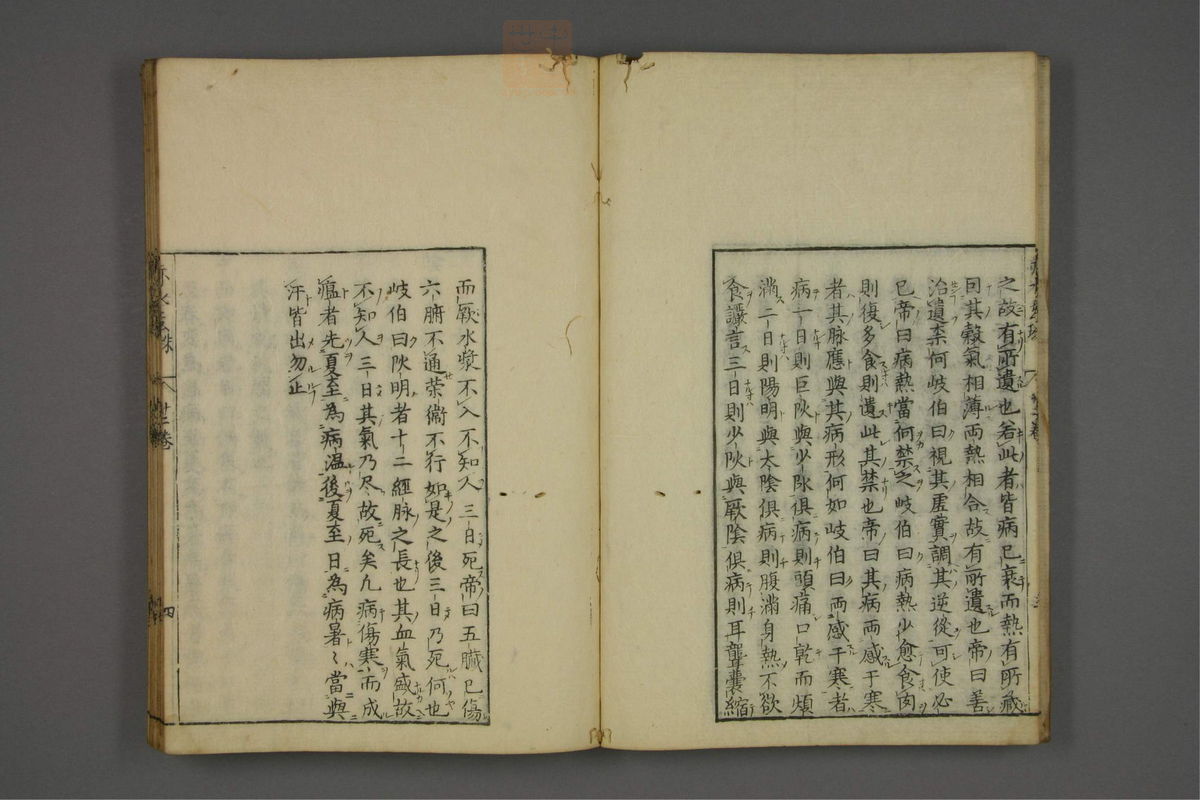 之故有所遺也若此者皆病已衰而熱有所藏
因其穀氣相薄両熱相合故有所遺也帝曰善
治遺柰何岐伯曰視其虚實調其逆從可使必
已帝曰病熱當何禁之岐伯曰病熱少愈食肉
則復多食則遺此其禁也帝曰其病両感于寒
者其脉應與其病形何如岐伯曰両感于寒者
病一日則巨陽與少陰俱病則頭痛口乾而煩
滿二日則陽明與太陰俱病則腹滿身熱不欲
食讝言三日則少陽與厥陰俱病則耳聾囊縮
而厥水漿不入不知人三日死帝曰五臟已傷
六腑不通荣衛不行如是之後三日乃死何也
岐伯曰陽明者十二經脉之長也其血氣盛故
不知人三日其氣乃尽故死矣凡病傷寒而成
瘟者先夏至為病温後夏至日為病暑〻當與
汗皆出勿止
卅二巻
四